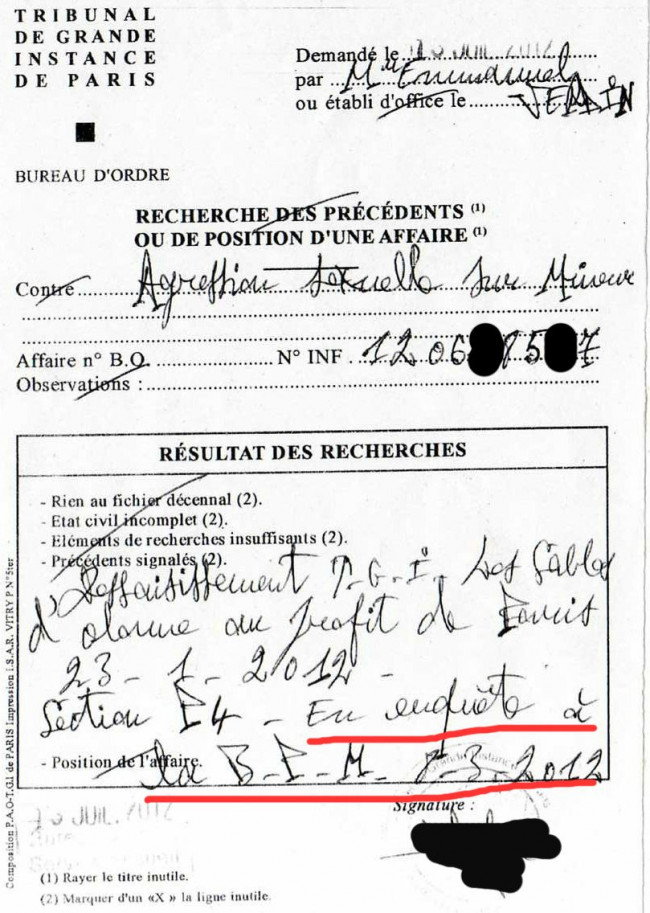 TRIBUNAL
DE GRANDE
INSTANCE
DE PARIS
Demandé le 13 JUIL. 2012
par Me Emmanuel
ou établi d'office le VERDIN
BUREAU D'ORDRE
RECHERCHE DES PRÉCÉDENTS (1)
OU DE POSITION D'UNE AFFAIRE (1)
Contre Agression sexuelle sur Mineur
Affaire n° B.O. N° INF. 12 06 85 7
Observations :
RÉSULTAT DES RECHERCHES
- Rien au fichier décennal (2).
- Etat civil incomplet (2).
- Eléments de recherches insuffisants (2).
- Précédents signalés (2).
Dessaisissement T.G.I. Les Sables
d'olonne au profit de Paris
23 - 1 - 2012 -
Section P4 - En enquête à
- Position de l'affaire.
la B-P-M- 8-3-2012
Signature :
JUIL. 2012
(1) Rayer le titre inutile.
(2) Marquer d'un «X» la ligne inutile.
Composition P.A.O-T.G.I de PARIS Impression i.S.A.R. VITRY P N°5ter